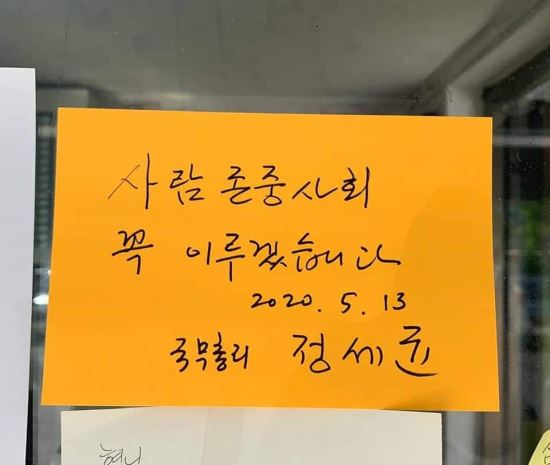 사람 존중 사회
꼭 이루겠습니다
2020. 5. 13
국무총리 정세균